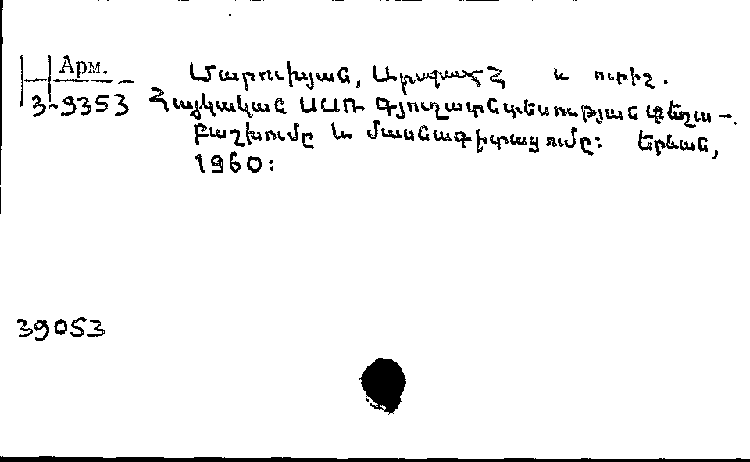 Арм.
3-9353
և ուրիշ.
Հայկական ՍՍՌ Գյուղատնտեսության տեղա-
բաշխումը և մասնագիտացումը: Երևան,
1960:
39053